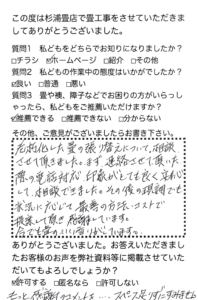 この度は杉浦畳店で畳工事をさせていただきま
してありがとうございました。
質問1 私どもをどちらでお知りになりましたか？
□チラシ ☑ホームページ □紹介 □その他
質問2 私どもの作業中の態度はいかがでしたか？
☑良い □普通 □悪い
質問3 畳や襖、障子などでお困りの方がいらっし
ゃったら、私どもをご推薦いただけますか？
☑推薦できる □推薦できない □分からない
その他、ご意見がございましたらお書き下さい。
老朽化した畳の張り替えについて、相談
させて頂きました。まず、連絡させて頂いた
際の電話対応が印象がとても良く、安心
して、相談できました。その後の現調でも
状況に応じて、最善の方法、コストで
提案して頂き、感謝しています。
ありがとうございました。お答えいただきまし
たお客様のお声を弊社資料等に掲載させていた
だいてもよろしでしょうか？
☑許可する □匿名なら □許可しない